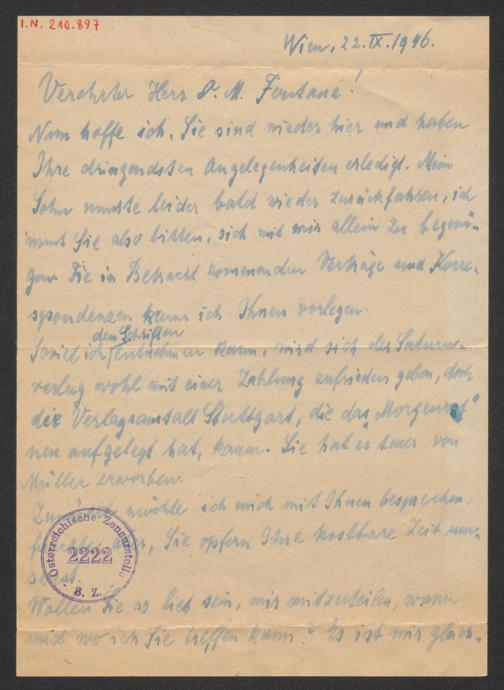 I.N. 210.897
Wien, 22.IX.1946.
Verehrter Herr O. M. Fontana!
Nun hoffe ich, Sie sind wieder hier und haben
Ihre dringendsten Angelegenheiten erledigt. Mein
Sohn musste leider bald wieder zurückfahren, ich
muss Sie also bitten, sich mit mir allein zu begnü-
gen. Die in Betracht kommenden Verträge und Korre-
spondenzen kann ich Ihnen vorlegen.
den Schriften
Soviel ich entnehmen kann, wird sich der Saturn-
verlag wohl mit einer Zahlung zufrieden geben, doch
die Verlagsanstalt Stuttgart, die das „Morgenrot"
neu aufgelegt hat, kaum. Sie hat es teuer von
Müller erworben.
möchte ich mich mit Ihnen besprechen,
aber, Sie opfern Ihre kostbare Zeit um-
sonst.
Wollen Sie so lieb sein, mir mitzuteilen, wann
und wo ich Sie treffen kann? Es ist mir gleich-
Österreichische Zensurstelle
2222
S. Z.